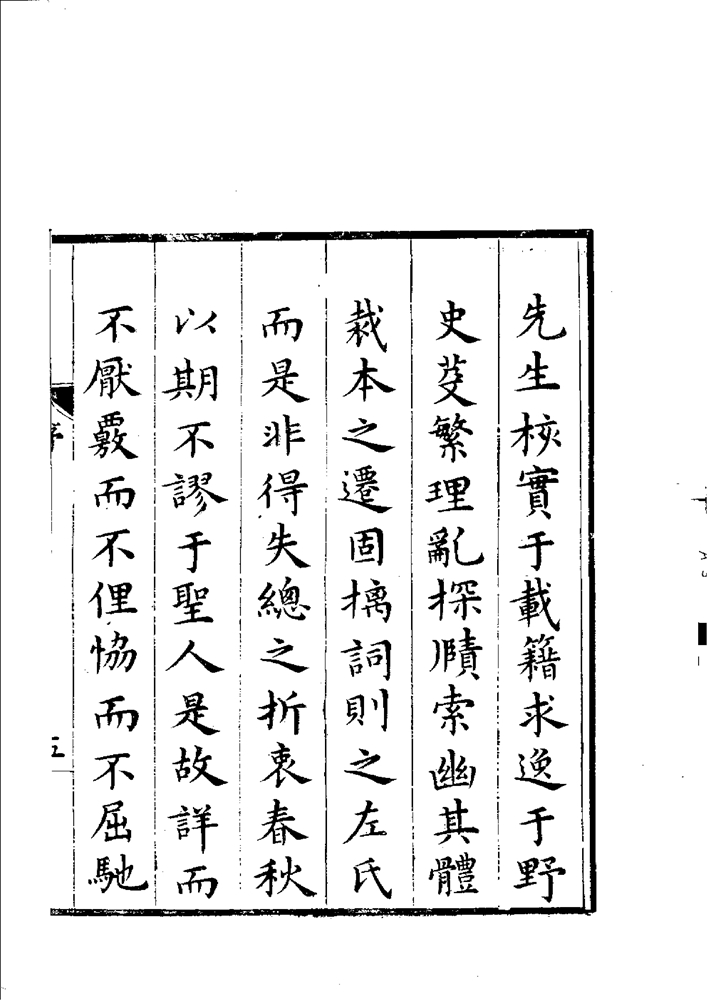 先生核實于載籍求逸于野
史芟繁理亂探賾索幽其體
裁本之遷固摛詞則之左氏
而是非得失總之折衷春秋
以期不謬于聖人是故詳而
不厭覈而不俚恊而不屈馳